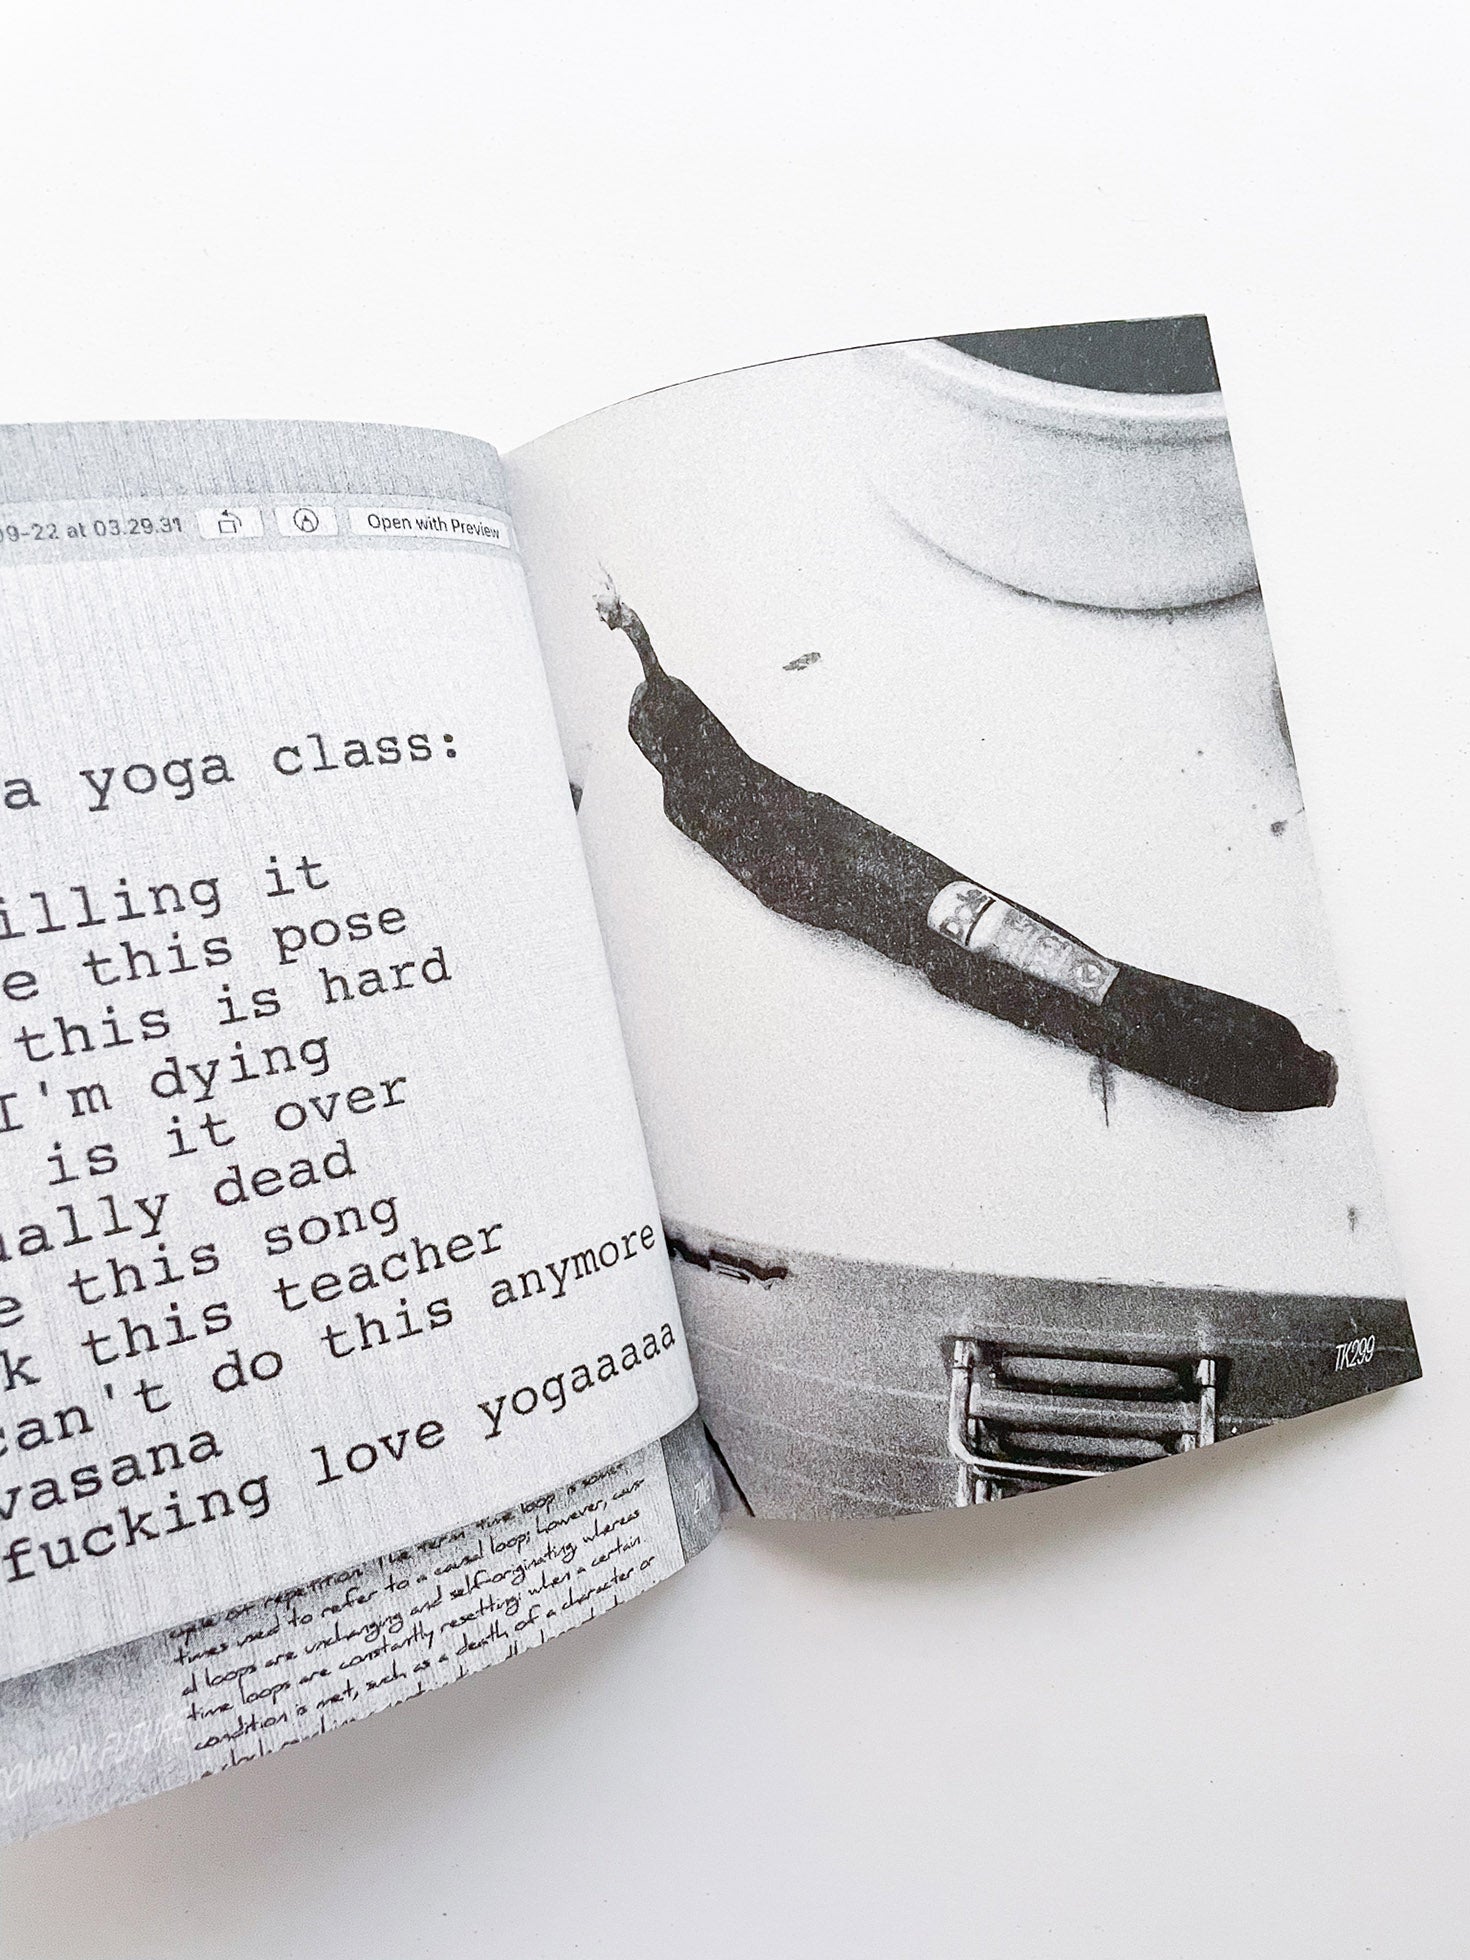 09-22 at 03.29.31 Open with Preview
a yoga class:
illing it
e this pose
this is hard
I'm dying
is it over
ually dead
e this song
k this teacher
can't do this anymore
vasana
fucking love yogaaaaa
repetition. The term time loop is some-
times used to refer to a causal loop; however, caus-
al loops are unchanging and self-originating, whereas
time loops are constantly resetting: when a certain
condition is met, such as a death of a character or
COMMON FUTURE
TK299